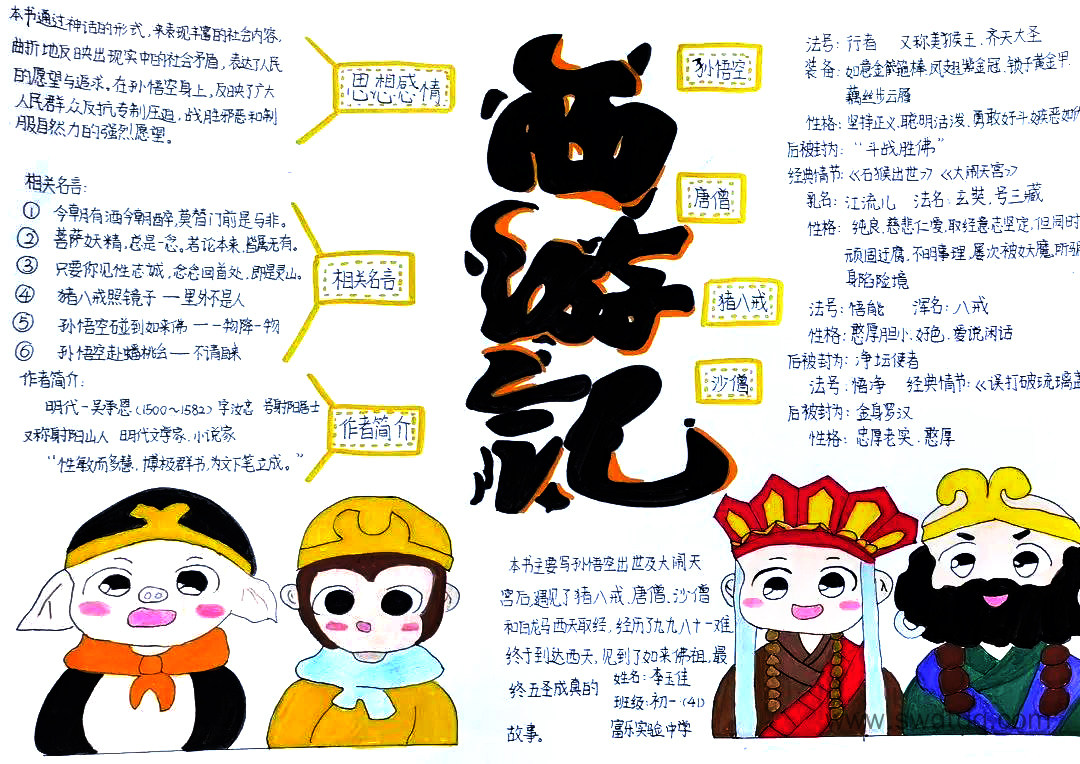 本书通过神话的形式，来表现丰富的社会内容，
曲折地反映出现实中的社会矛盾，表达了人民
的愿望与追求。在孙悟空身上，反映了广大
人民群众反抗专制压迫，战胜邪恶和制
服自然力的强烈愿望。
思想感情
相关名言：
① 今朝有酒今朝醉，莫管门前是与非。
② 菩萨妖精，总是一念。若论本来，皆属无有。
③ 只要你见性志诚，念念回首处，即是灵山。
④ 猪八戒照镜子 一 里外不是人
⑤ 孙悟空碰到如来佛 一 一物降一物
⑥ 孙悟空赴蟠桃会 一 不请自来
相关名言
作者简介：
明代-吴承恩（1500～1582）字汝忠 号射阳居士
又称射阳山人 明代文学家、小说家
“性敏而多慧，博极群书，为文下笔立成。”
作者简介
西游记
孙悟空
法号：行者 又称美猴王、齐天大圣
装备：如意金箍棒、凤翅紫金冠、锁子黄金甲、
藕丝步云履
性格：坚持正义、聪明活泼、勇敢好斗、嫉恶如
后被封为：“斗战胜佛”
经典情节：《石猴出世》《大闹天宫》
唐僧
乳名：江流儿 法名：玄奘，号三藏
性格：纯良、慈悲仁爱，取经意志坚定，但同时
顽固迂腐、不明事理，屡次被妖魔所
身陷险境
猪八戒
法号：悟能 浑名：八戒
性格：憨厚胆小、好色、爱说闲话
后被封为：净坛使者
沙僧
法号：悟净 经典情节：《误打破琉璃盏
后被封为：金身罗汉
性格：忠厚老实、憨厚
本书主要写孙悟空出世及大闹天
宫后，遇见了猪八戒、唐僧、沙僧
和白龙马西天取经，经历了九九八十一难
终于到达西天，见到了如来佛祖，最
终五圣成真的
故事。
姓名：李玉佳
班级：初一（41）
富乐实验中学